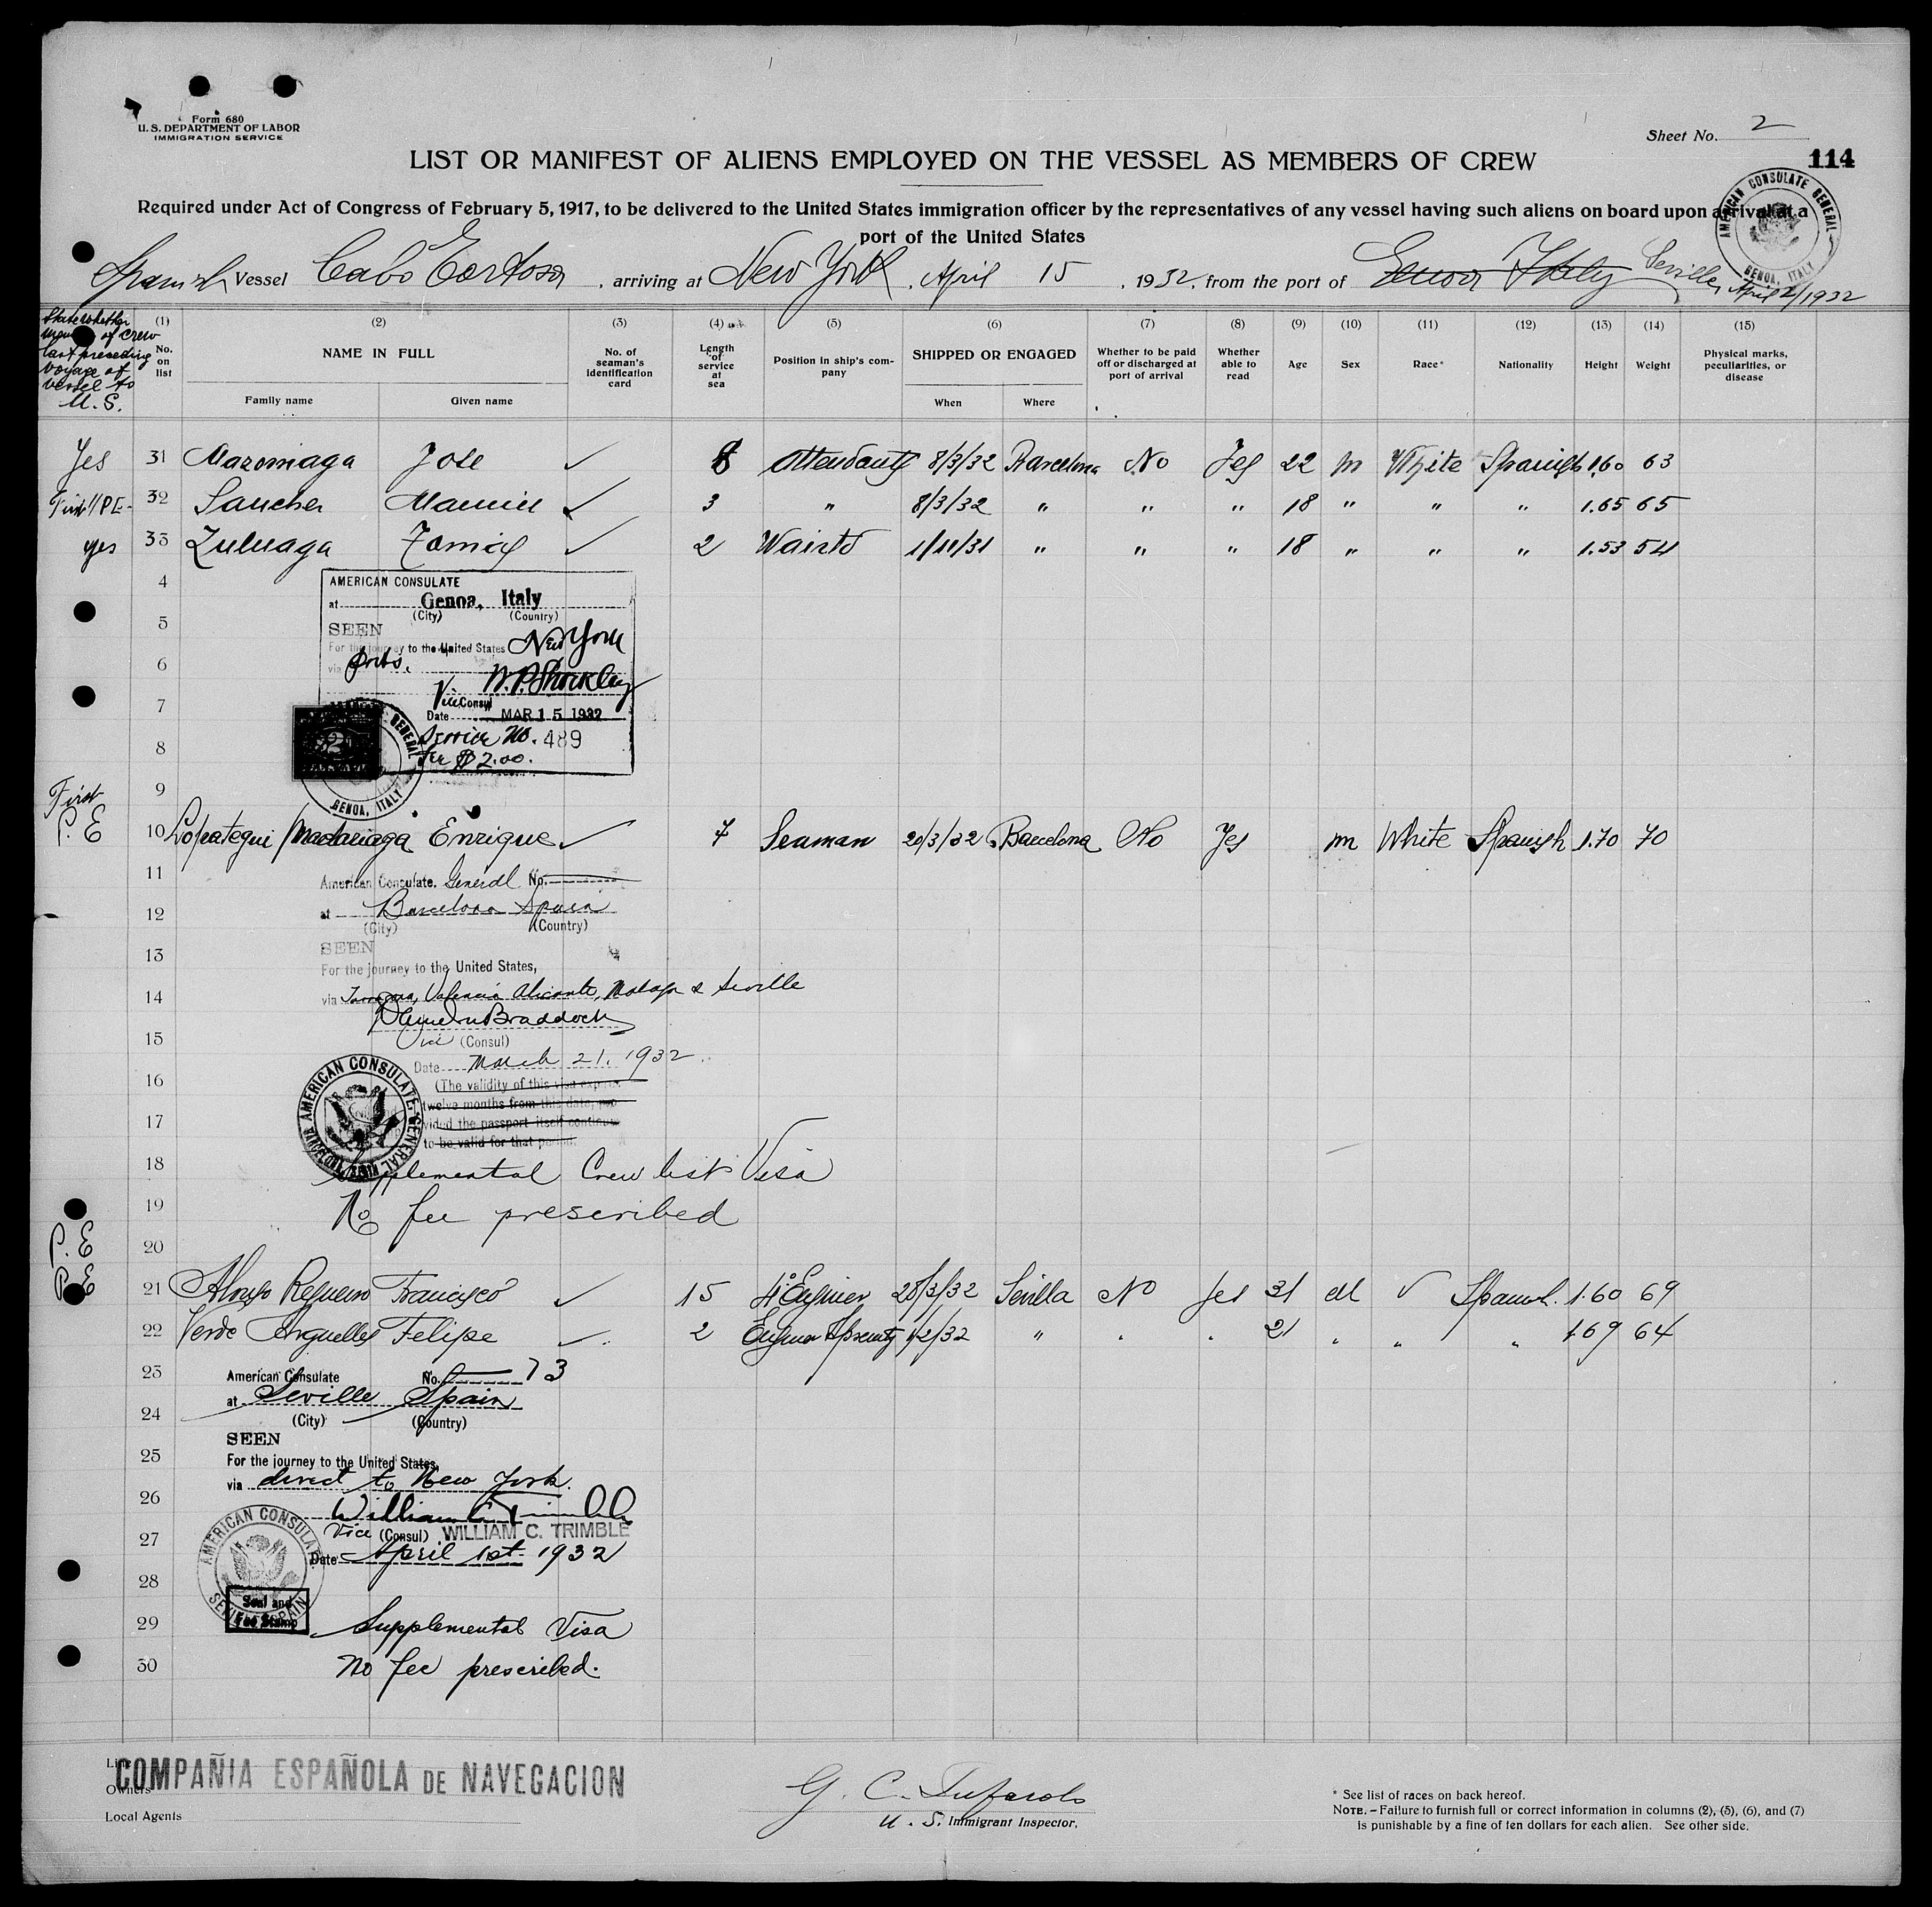 Form 680
U.S. DEPARTMENT OF LABOR
IMMIGRATION SERVICE
Sheet No. 2
LIST OR MANIFEST OF ALIENS EMPLOYED ON THE VESSEL AS MEMBERS OF CREW
114
Required under Act of Congress of February 5, 1917, to be delivered to the United States immigration officer by the representatives of any vessel having such aliens on board upon arrival at a
port of the United States
AMERICAN CONSULATE GENERAL GENOA, ITALY
Spanish Vessel Cabo Tortosa, arriving at New York, April 15, 1932, from the port of Genova Italy Seville, April 2/1932
State whether member of crew last preceding voyage of vessel to U.S.
(1) (2) (3) (4) (5) (6) (7) (8) (9) (10) (11) (12) (13) (14) (15)
No. on list NAME IN FULL No. of seaman's identification card Length of service at sea Position in ship's company SHIPPED OR ENGAGED Whether to be paid off or discharged at port of arrival Whether able to read Age Sex Race* Nationality Height Weight Physical marks, peculiarities, or disease
Family name Given name When Where
Yes 31 Jose ✓ 8/3/32 Barcelona No Yes 22 m White Spanish 1.60 63
First P.E. 32 Sanchez Manuel ✓ 3 " 8/3/32 " " " 18 " " " 1.65 65
yes 33 Zuluaga ✓ 2 1/11/31 " " " 18 " " " 1.53 54
4
AMERICAN CONSULATE
at Genoa, Italy
(City) (Country)
5
SEEN
For the journey to the United States New York
6
via ports.
W.P. Shockley
7
Vice Consul
Date MAR 15 1932
Service No. 489
8
Fee $2.00.
GENOA, ITALY
9
First
P.E 10 Lopategui Madariaga Enrique ✓ 7 Seaman 20/3/32 Barcelona No Yes m White Spanish 1.70 70
11
American Consulate General No.
12
at Barcelona Spain
(City) (Country)
13
SEEN
For the journey to the United States,
14
via Tarragona, Valencia Alicante, Malaga & Seville
Braddock
15
Vice (Consul)
Date March 21, 1932.
16
(The validity of this visa expires
twelve months from this date, pro-
17
vided the passport itself continues
to be valid for that period.
AMERICAN CONSULATE GENERAL
18
Supplemental Crew list Visa
19
No fee prescribed
20
P.E
P.E 21 Alonso Regueiro Francisco ✓ 15 4º Engineer 28/3/32 Sevilla No Yes 31 M ✓ Spanish 1.60 69
22 Verde Arguelles Felipe ✓ 2 /32 " 21 " " " 1.69 64
23
American Consulate No. 73
at Seville Spain
24
(City) (Country)
SEEN
25
For the journey to the United States,
via direct to New York.
26
William C. Trimble
27
Vice (Consul) WILLIAM C. TRIMBLE
Date April 1st 1932
AMERICAN CONSULATE SEVILLE, SPAIN
28
Seal and
Fee Stamp
29
Supplemental Visa
30
No fee prescribed.
Line
COMPAÑIA ESPAÑOLA DE NAVEGACION
Owners
Local Agents
G. C.
U. S. Immigrant Inspector.
* See list of races on back hereof.
NOTE.—Failure to furnish full or correct information in columns (2), (5), (6), and (7)
is punishable by a fine of ten dollars for each alien. See other side.